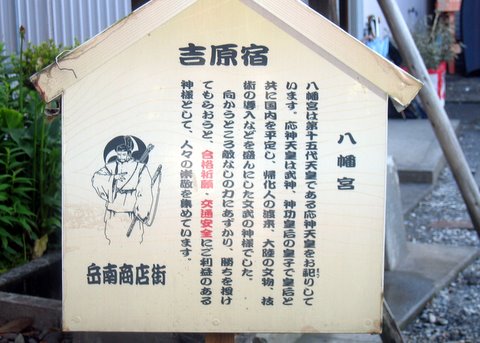 吉原宿
八幡宮
八幡宮は第十五代天皇である応神天皇をお記りして
います。応神天皇は武神、神功皇后の皇子で皇后と
共に国内を平定し、帰化人の渡来、大陸の文物、技
術の導入などを盛んにした文武の神様でした。
向かうところ敵なしの力にあずかり、勝ちを授け
てもらおうと、合格祈願、交通安全にご利益のある
神様として、人々の崇敬を集めています。
岳南商店街